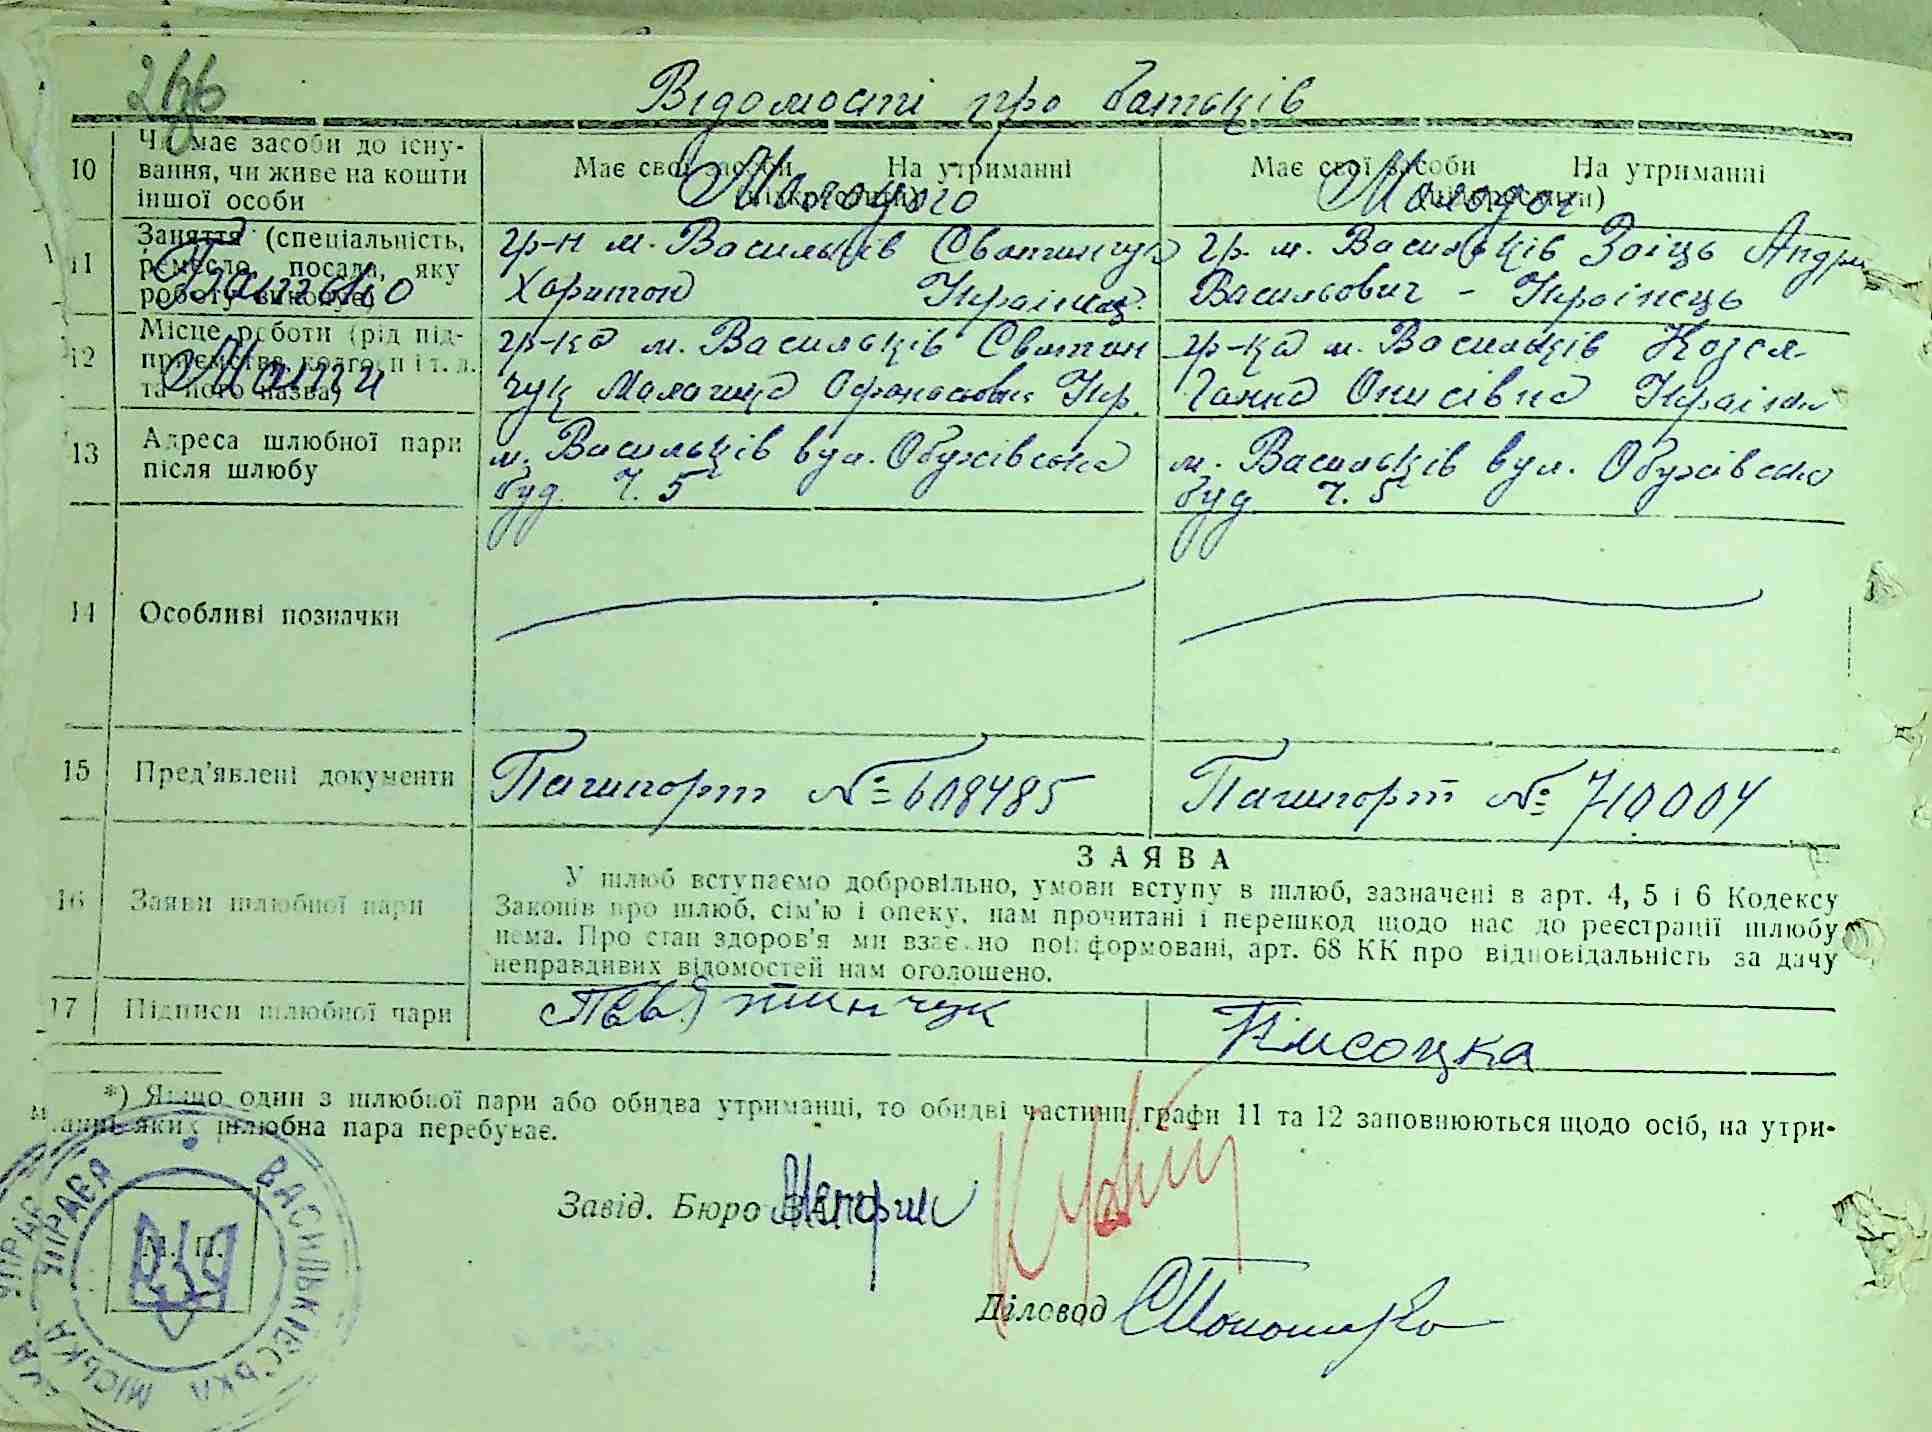 266
Відомості про батьків
10
Чи має засоби до існу-
вання, чи живе на кошти
іншої особи
Має свої засоби На утриманні
Молодого
Має свої засоби На утриманні
Молодої
11
Заняття (спеціальність,
ремесло, посада, яку
роботу виконує)
Батько
гр-н м. Васильків Святинчук
Харитон Українец.
гр. м. Васильків Заіць Андрі
Васильович - Українець
12
Місце роботи (рід під-
приємства, колгосп і т. д.
та його назва)
Мати
гр-ка м. Васильків Святин
чук Малашка Офанасовна Укр.
гр-ка м. Васильків Козел
Ганна Онисівна Українк
13
Адреса шлюбної пари
після шлюбу
м. Васильків вул. Обухівська
буд. ч. 5
м. Васильків вул. Обухівська
буд ч. 5
14
Особливі позначки
15
Пред'явлені документи
Пашпорт № 618485
Пашпорт № 710004
16
Заяви шлюбної пари
ЗАЯВА
У шлюб вступаємо добровільно, умови вступу в шлюб, зазначені в арт. 4, 5 і 6 Кодексу
Законів про шлюб, сім'ю і опеку, нам прочитані і перешкод щодо нас до реєстрації шлюбу
нема. Про стан здоров'я ми взаємно поінформовані, арт. 68 КК про відповідальність за дачу
неправдивих відомостей нам оголошено.
17
Підписи шлюбної пари
Святинчук
Висоцка
*) Якщо один з шлюбної пари або обидва утриманці, то обидві частини графи 11 та 12 заповнюються щодо осіб, на утри-
манні яких шлюбна пара перебуває.
Завід. Бюро
Діловод
М. П.
ВАСИЛЬКІВСЬКА МІСЬКА УПРАВА